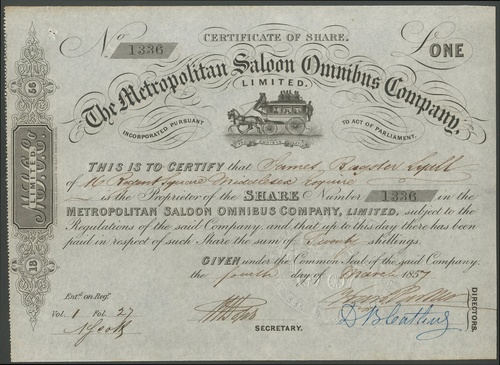 CERTIFICATE OF SHARE.
No 1336
£ONE
The Metropolitan Saloon Omnibus Company,
LIMITED.
INCORPORATED PURSUANT
TO ACT OF PARLIAMENT.
THIS IS TO CERTIFY that James Bagster Lyell
of 16 Regent Square Middlesex Esquire
is the Proprietor of the SHARE Number 1336 in the
METROPOLITAN SALOON OMNIBUS COMPANY, LIMITED, subject to the
Regulations of the said Company, and that up to this day there has been
paid in respect of such Share the sum of Twenty shillings.
GIVEN under the Common Seal of the said Company,
the fourth day of March 1857
Entd. on Regr.
Vol. 1 Fol. 27
SECRETARY.
DIRECTORS.
18
LIMITED
56